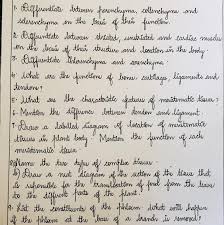 1. Differentiate between parenchyma, collenchyma and
sclerenchyma on the basis of their function.
2. Differentiate between striated, unstriated and cardiac muscles
on the basis of their structure and location in the body.
3. Differentiate Chlorenchyma and aerenchyma.
4. What are the functions of bone, cartilage, ligaments and
tendons?
5. What are the characteristic features of meristematic tissues?
6. Mention the difference between tendon and ligament.
7. Draw a labelled diagram of location of meristematic
tissues in plant body. Mention the function of each
meristematic tissue.
8. a) Name the two types of complex tissue.
b) Draw a neat diagram of the section of the tissue that
is responsible for the translocation of food from the leaves
to the different parts of the plant.
9. List constituents of the phloem. What will happen
if the phloem at the base of a branch is removed?